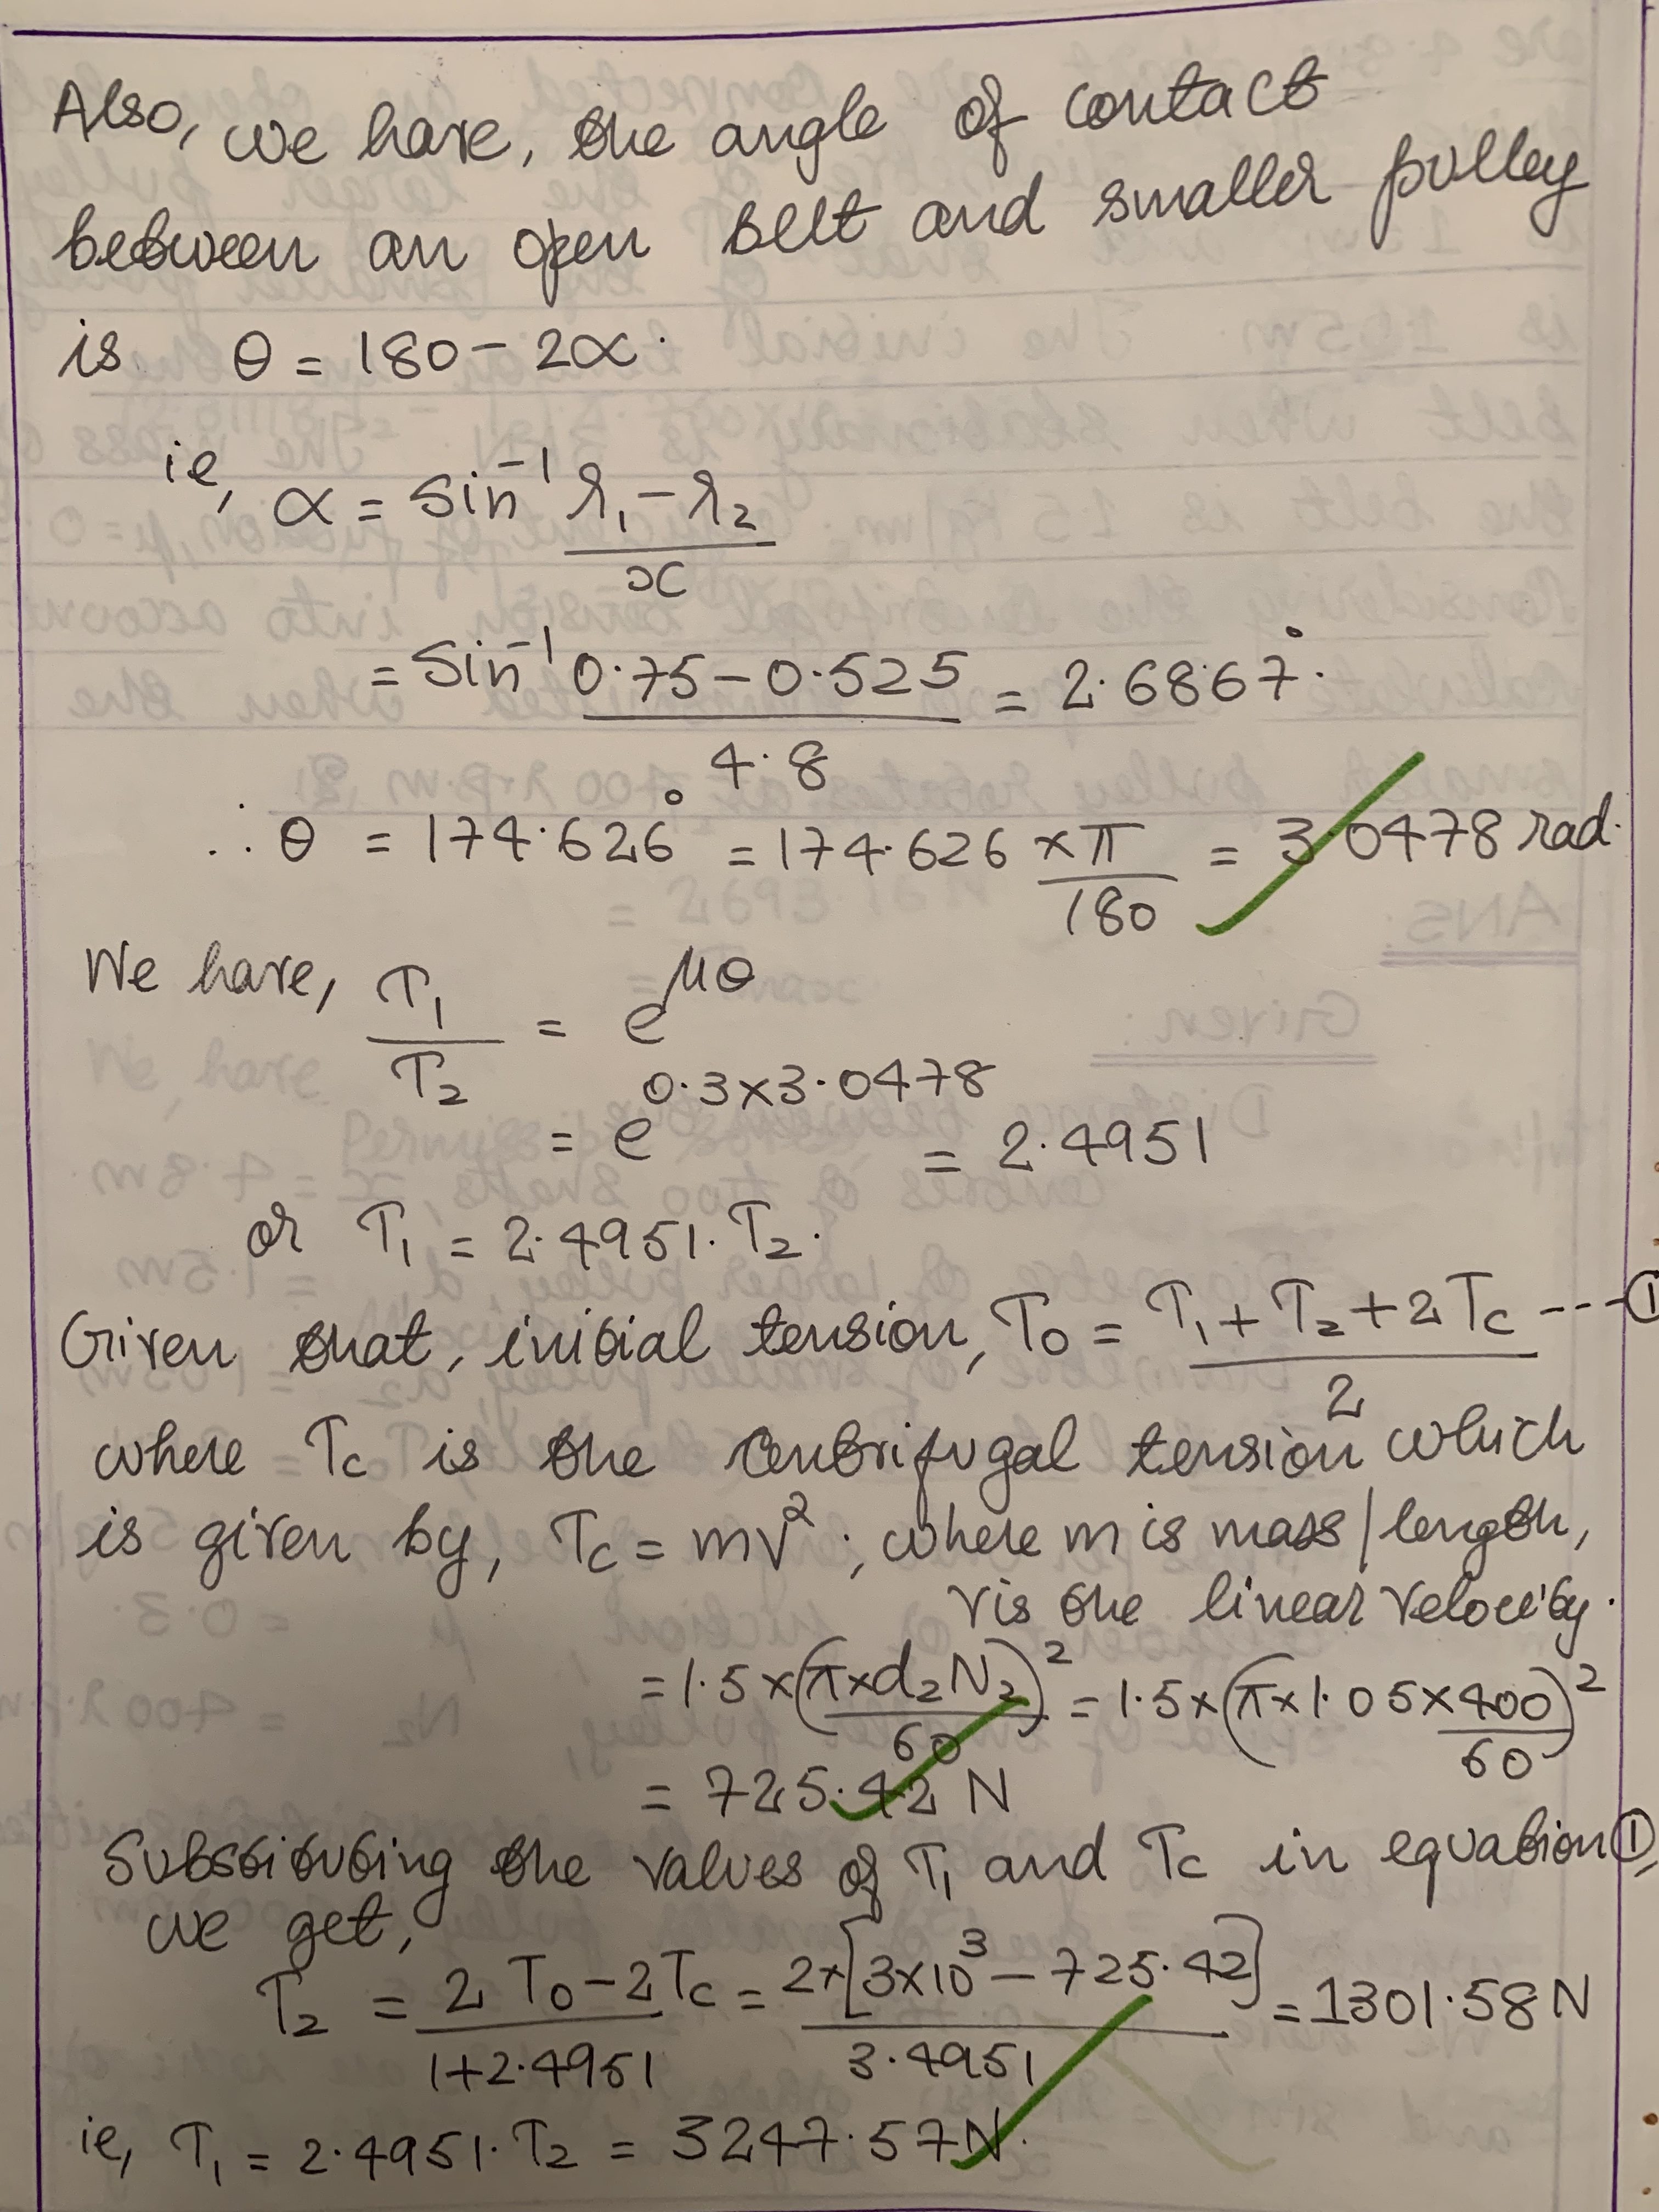 Also, we have, the angle of contact
between an open belt and smaller pulley
is θ = 180 - 2α.
ie, α = Sin⁻¹ (r₁ - r₂)/x
= Sin⁻¹ (0.75 - 0.525)/4.8 = 2.6867°.
∴ θ = 174.626° = 174.626 × π/180 = 3.0478 rad.
We have, T₁/T₂ = e^μθ
= e^0.3×3.0478 = 2.4951
or T₁ = 2.4951. T₂.
Given that, initial tension, T₀ = (T₁ + T₂ + 2Tc)/2 ---①
where Tc is the Centrifugal tension which
is given by, Tc = mv²; where m is mass/length,
v is the linear velocity.
= 1.5 × (π×d₂N₂/60)² = 1.5 × (π×1.05×400/60)²
= 725.42 N
Substituting the values of T₁ and Tc in equation ①,
we get,
T₂ = (2T₀ - 2Tc)/(1+2.4951) = 2×[3×10³ - 725.42]/3.4951 = 1301.58 N
ie, T₁ = 2.4951. T₂ = 3247.57 N.